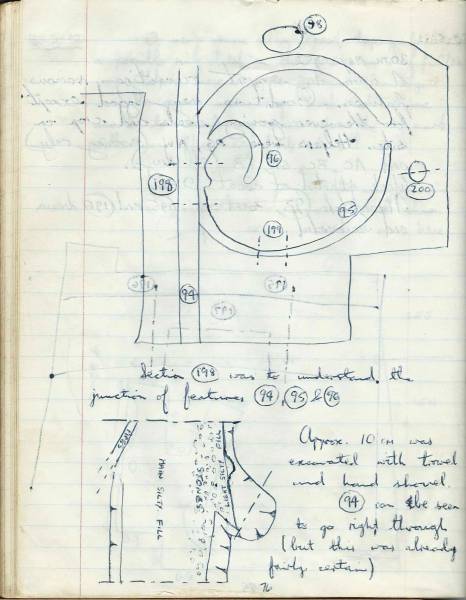 98
96
198
200
95
199
94
Section 198 was to understand the
junction of features 94, 95 & 96
Approx. 10 cm was
excavated with trowel
and hand shovel.
94 can be seen
to go right through
(but this was already
fairly certain)
MAIN SILTY FILL
STONES
LIGHT SILTY FILL